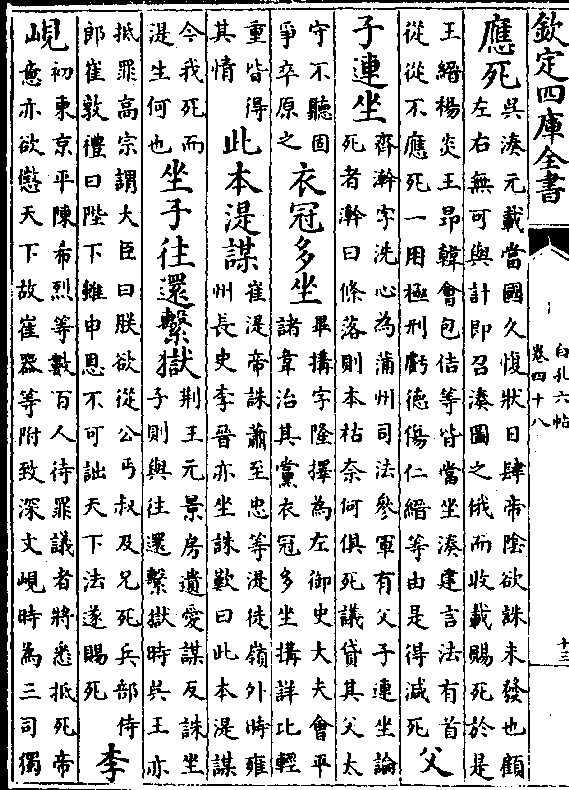 欽定四庫全書
白孔六帖
卷四十八
十三
應死
吳湊元載當國久愎狀日肆帝陰欲誅未發也顧
左右無可與計即召湊圖之俄而收載賜死於是
王縉楊炎王昂韓會包佶等皆當坐湊建言法有首
從從不應死一用極刑虧德傷仁縉等由是得減死
父
子連坐
齊澣字洗心為蒲州司法參軍有父子連坐論
死者澣曰條落則本枯奈何俱死議貸其父太
守不聽固
爭卒原之
衣冠多坐
畢搆字隆擇為左御史大夫會平
諸韋治其黨衣冠多坐搆詳比輕
重皆得
其情
此本湜謀
崔湜帝誅蕭至忠等湜徒嶺外時雍
州長史李晉亦坐誅歎曰此本湜謀
今我死而
湜生何也
坐子往還繫獄
荆王元景房遺愛謀反誅坐
子則與往還繫獄時吳王亦
抵罪高宗謂大臣曰朕欲從公丐叔及兄死兵部侍
郎崔敦禮曰陛下雖申恩不可詘天下法遂賜死
李
峴
初東京平陳希烈等數百人待罪議者將悉抵死帝
意亦欲懲天下故崔器等附致深文峴時為三司獨